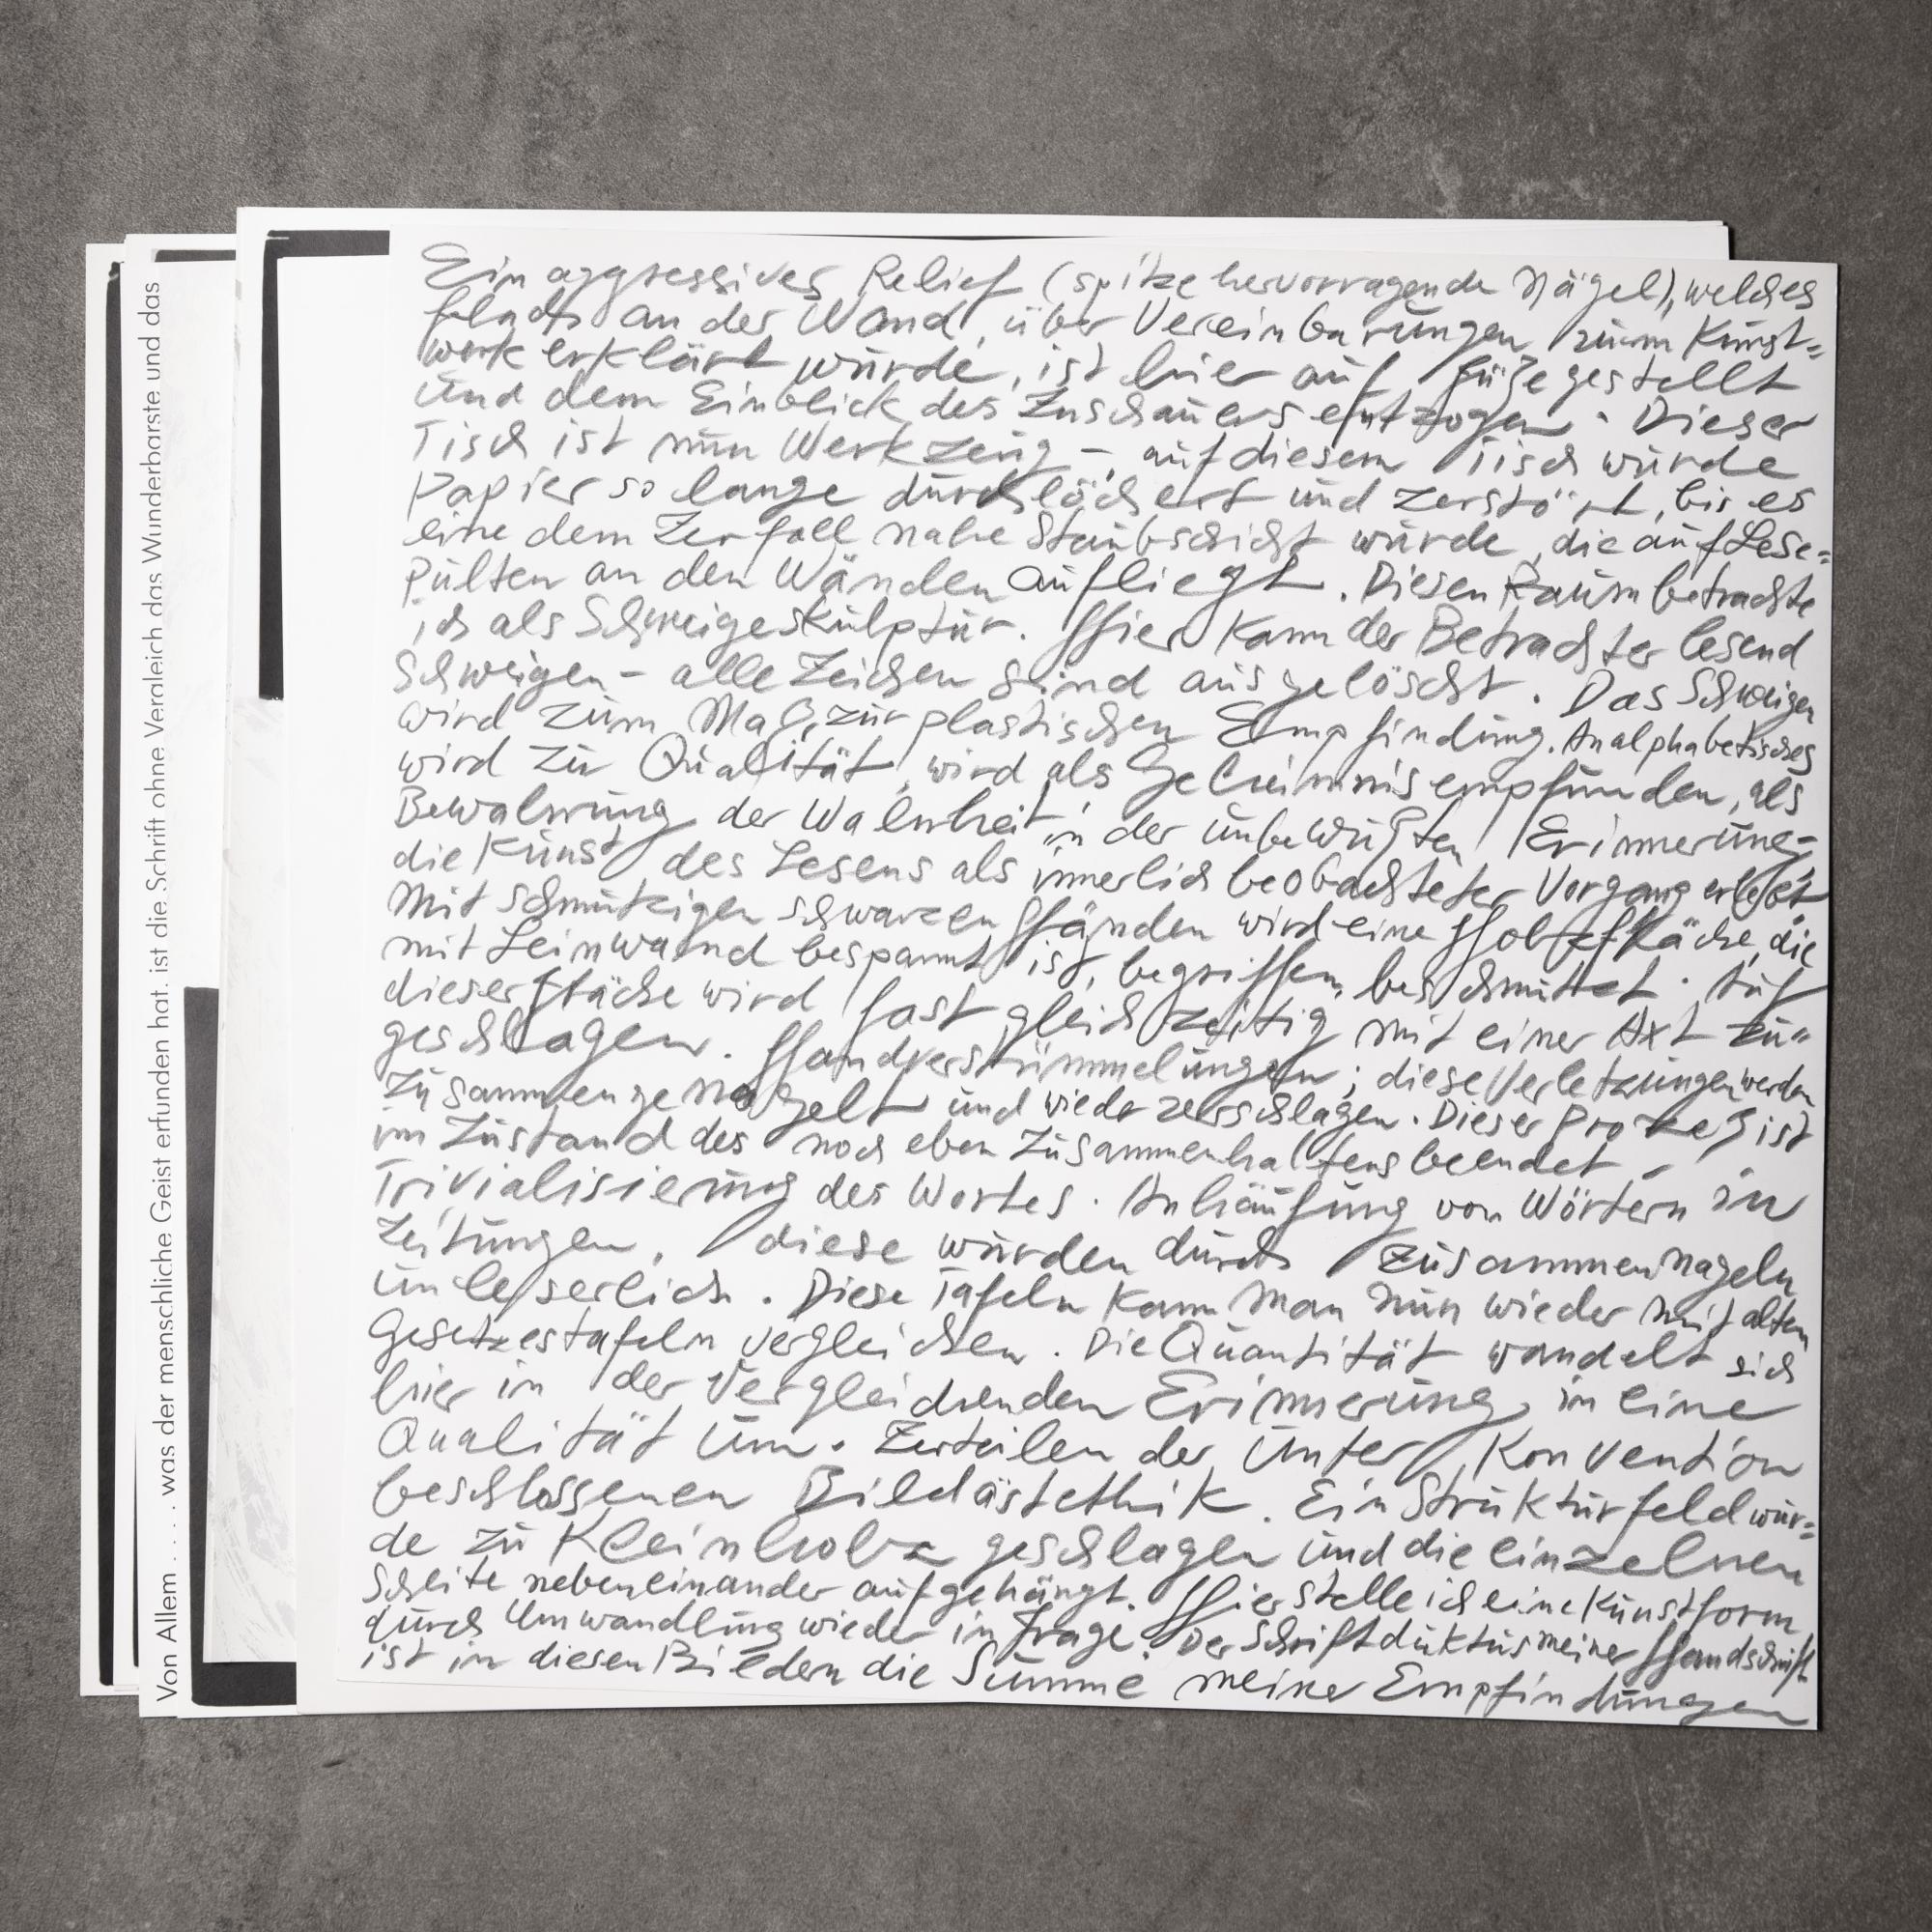 Von Allem . . . . was der menschliche Geist erfunden hat, ist die Schrift ohne Vergleich das Wunderbarste und das
Ein aggressives Relief (spitze hervorragende Nägel), welches
flach an der Wand, über Vereinbarungen zum Kunst=
werk erklärt wurde, ist hier auf Füße gestellt
und dem Einblick des Zuschauers entzogen. Dieser
Tisch ist nun Werkzeug –, auf diesem Tisch wurde
Papier so lange durchlöchert und zerstört, bis es
eine dem Zerfall nahe Staubschicht wurde, die auf Lese=
pulten an den Wänden aufliegt. Diesen Raum betrachte
ich als Schweigeskulptur. Hier kann der Betrachter lesend
schweigen – alle Zeichen sind ausgelöscht. Das Schweigen
wird zum Maß, zur plastischen Empfindung. Analphabetisches
wird zu Qualität, wird als Geheimnis empfunden, als
Bewahrung der Wahrheit, in der unbewußten Erinnerung,
die Kunst des Lesens als innerlich beobachteter Vorgang erlebt
Mit schmutzigen schwarzen Händen wird eine Holzfläche, die
mit Leinwand bespannt ist, begriffen, beschmutzt. Auf
dieser Fläche wird fast gleichzeitig mit einer Axt zu=
geschlagen. Handverstümmelungen; diese Verletzungen werden
zusammengenagelt und wieder zerschlagen. Dieser Prozeß ist
im Zustand des noch eben Zusammenhaltens beendet –
Trivialisierung des Wortes. Anhäufung von Wörtern in
Zeitungen, diese wurden durch Zusammennageln
unleserlich. Diese Tafeln kann man nun wieder mit alten
Gesetzestafeln vergleichen. Die Quantität wandelt sich
hier in der vergleichenden Erinnerung, in eine
Qualität um. Zerteilen der unter Konvention
beschlossenen Bildästethik. Ein Strukturfeld wur=
de zu Kleinholz geschlagen und die einzelnen
Scheite nebeneinander aufgehängt. Hier stelle ich eine Kunstform
durch Umwandlung wieder in Frage. Der Schriftduktus meiner Handschrift
ist in diesen Bildern die Summe meiner Empfindungen